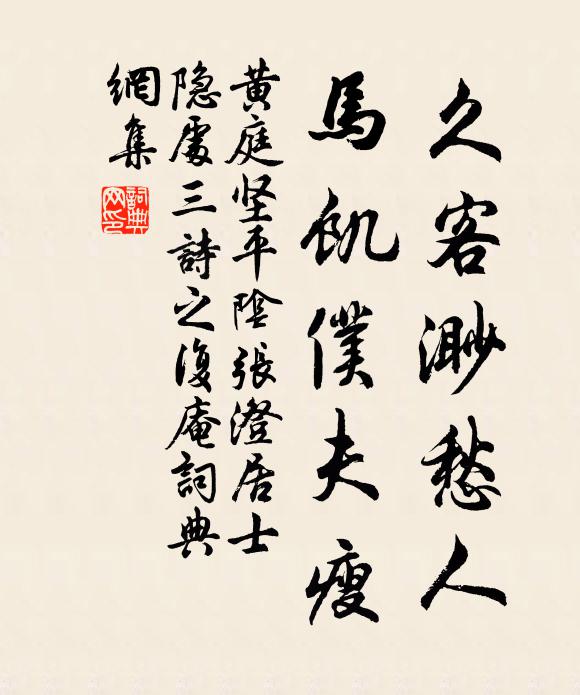 久客渺愁人
馬飢僕夫瘦
黃庭坚平陰張澄居士
隐處三詩之復庵詞典
網集
詞典網印